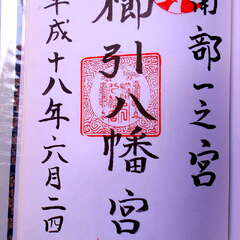 南部一之宮
櫛引八幡宮
平成十八年六月二四